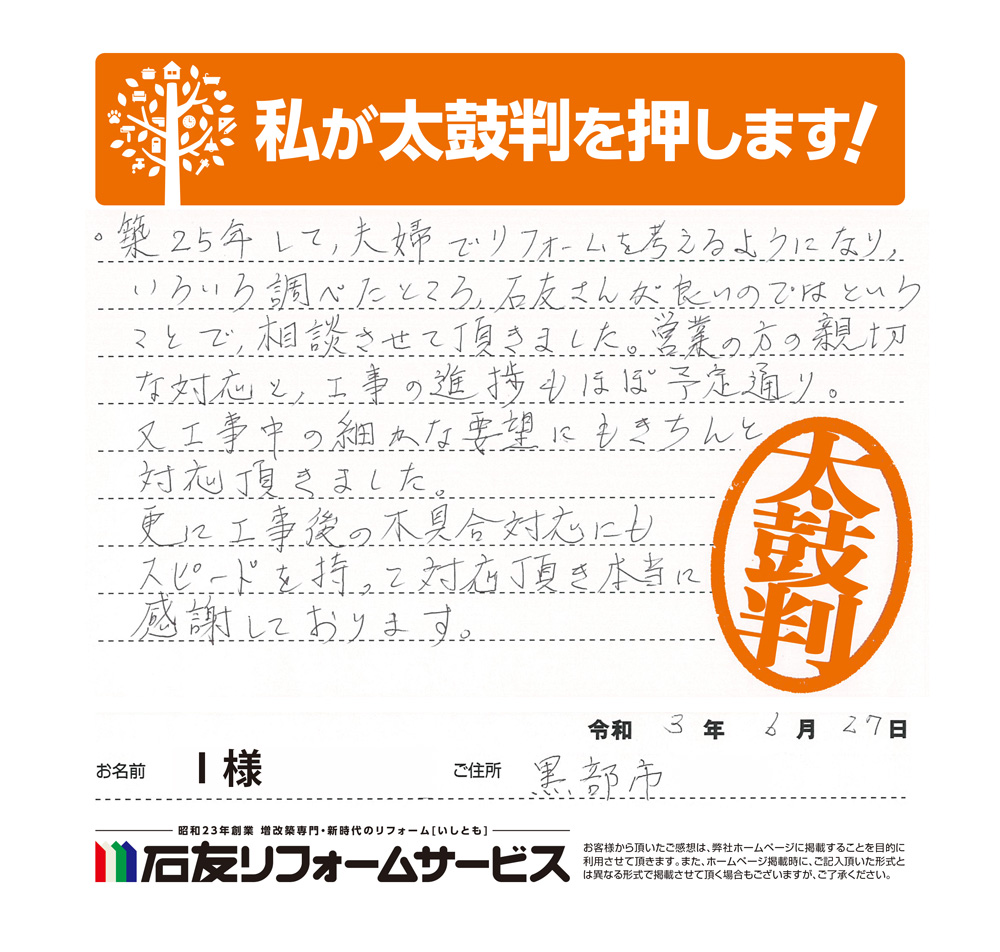 私が太鼓判を押します!
。築25年して,夫婦でリフォームを考えるようになり,
いろいろ調べたところ,石友さんが良いのではという
ことで,相談させて頂きました。営業の方の親切
な対応と,工事の進捗もほぼ予定通り。
又工事中の細かな要望にもきちんと
対応頂きました。
更に工事後の不具合対応にも
スピードを持って対応頂き本当に
感謝しております。
太鼓判
令和 3 年 6 月 27 日
お名前 I 様 ご住所 黒部市
昭和23年創業 増改築専門・新時代のリフォーム[いしとも]
石友リフォームサービス
お客様から頂いたご感想は、弊社ホームページに掲載することを目的に
利用させて頂きます。また、ホームページ掲載時に、ご記入頂いた形式と
は異なる形式で掲載させて頂く場合もございますが、ご了承ください。